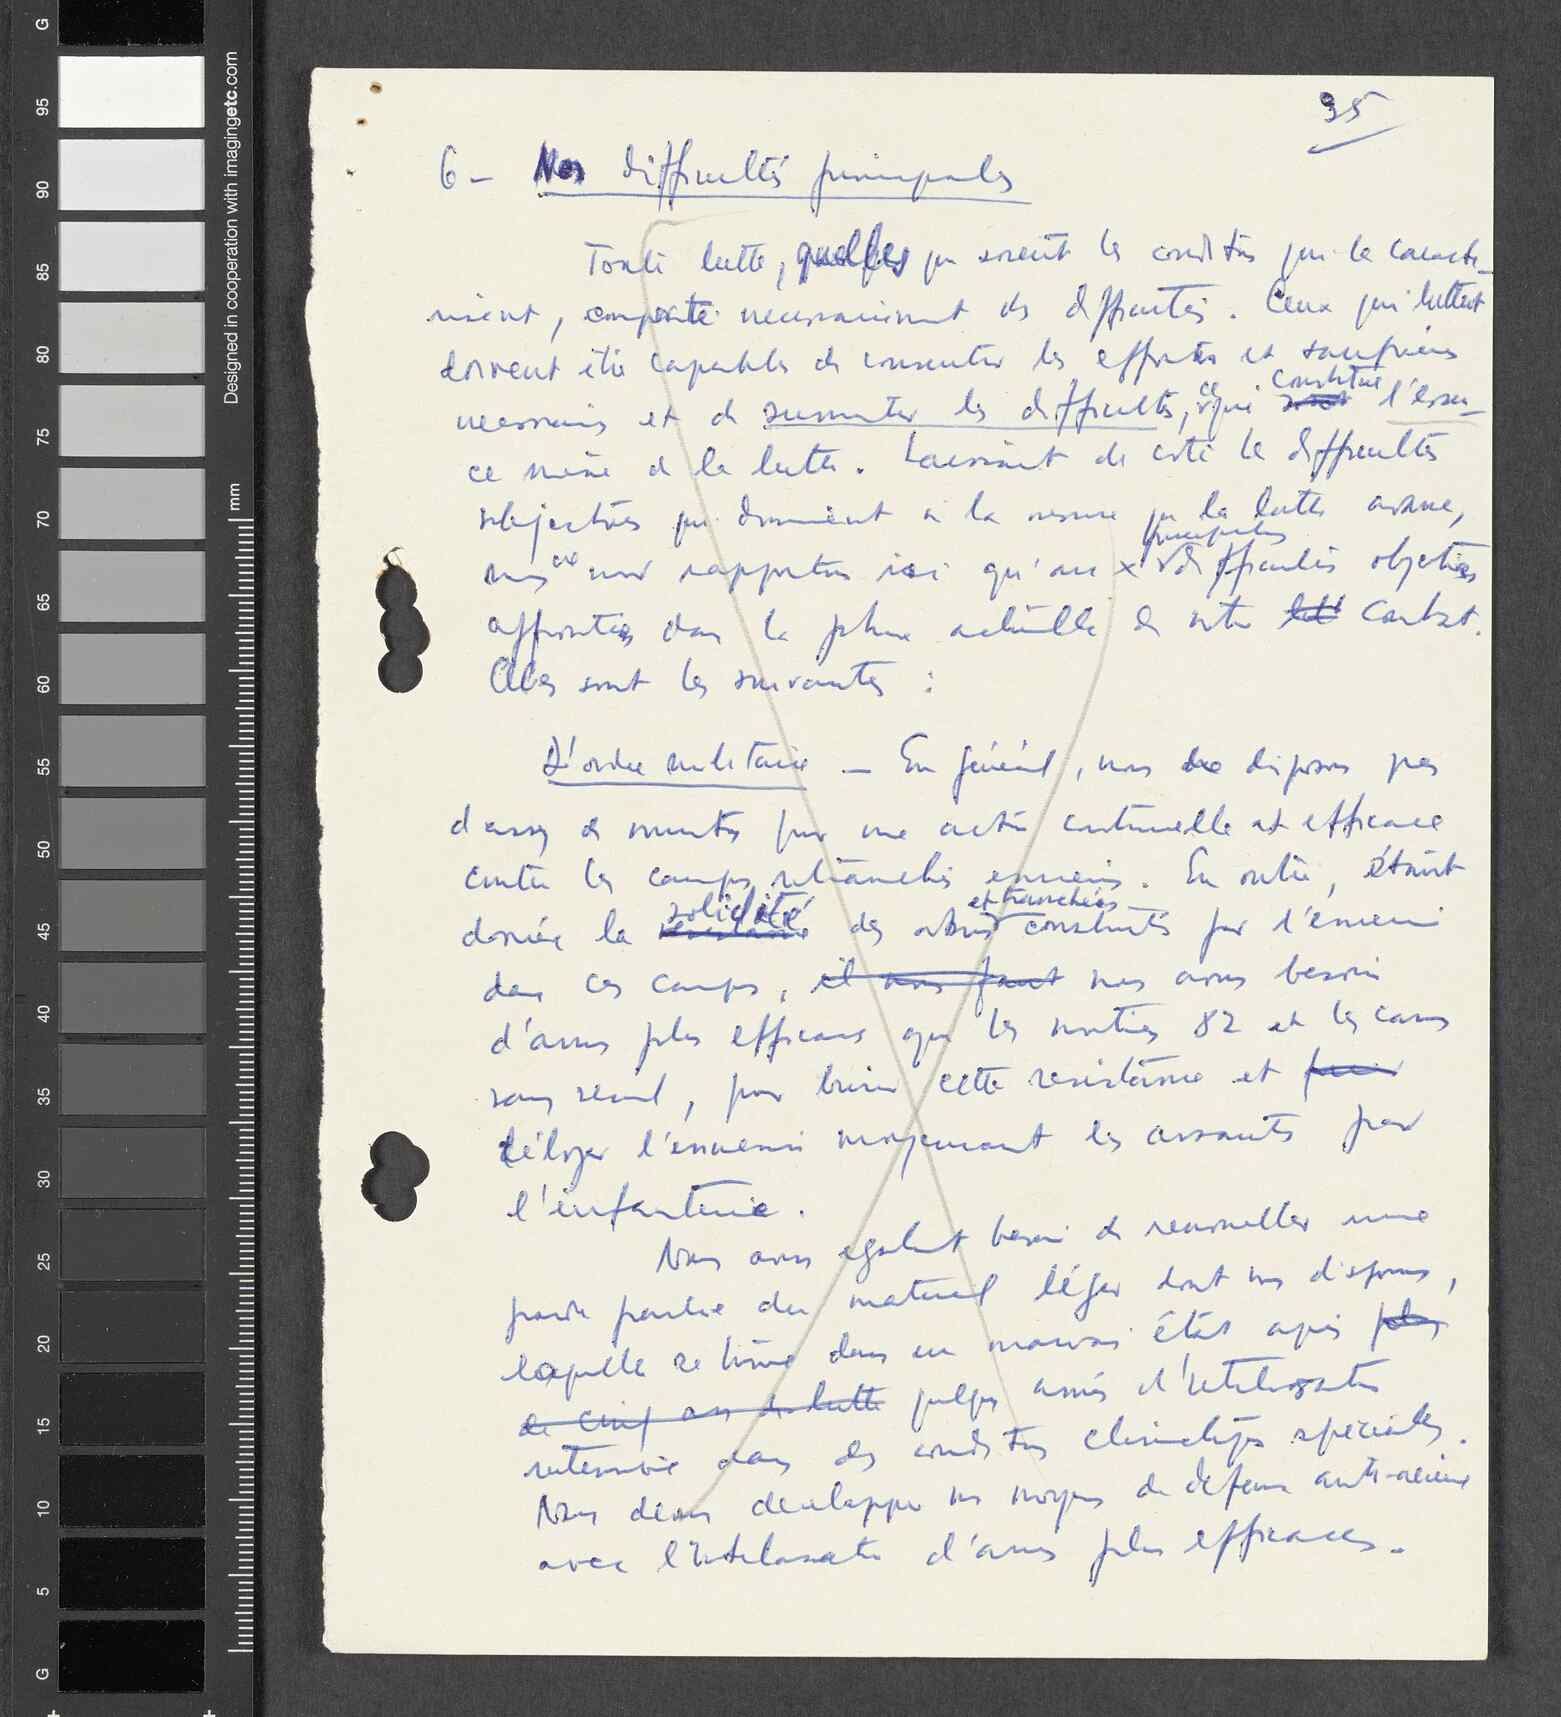 35
6 - Nos difficultés principales
Toute lutte, quelles que soient les conditions qui la caracté-
risent, comporte necessairement des difficultés. Ceux qui luttent
doivent être capables de consentir les efforts et sacrifices
necessaires et de surmonter les difficultés, ce qui constitue l'essen-
ce même de la lutte. Laissant de coté les difficultés
subjectives qui diminuent à la mesure que la lutte avance,
nous ne nous rapportons ici qu'aux principales difficultés objectives
affrontées dans la phase actuelle de notre combat.
Elles sont les suivantes :
D'ordre militaire - En général, nous ne disposons pas
d'assez de munitions pour une action continuelle et efficace
contre les camps retranchés ennemis. En outre, étant
donnée la solidité des abris et tranchées construits par l'ennemi
dans ces camps, il nous faut nous avons besoin
d'armes plus efficaces que les mortiers 82 et les canons
sans recul, pour briser cette resistance et
déloger l'ennemi moyennant les assauts par
l'infanterie.
Nous avons egalement besoin de renouveller une
grande partie du materiel léger dont nous disposons,
laquelle se trouve dans un mauvais état après plus
de cinq ans de lutte quelques années d'utilisation
intensive dans des conditions climatiques spéciales.
Nous devons developper nos moyens de defense anti-aérienne
avec l'utilisation d'armes plus efficaces.
Designed in cooperation with imagingetc.com
mm
G
95
90
85
80
75
70
65
60
55
50
45
40
35
30
25
20
15
10
5
G